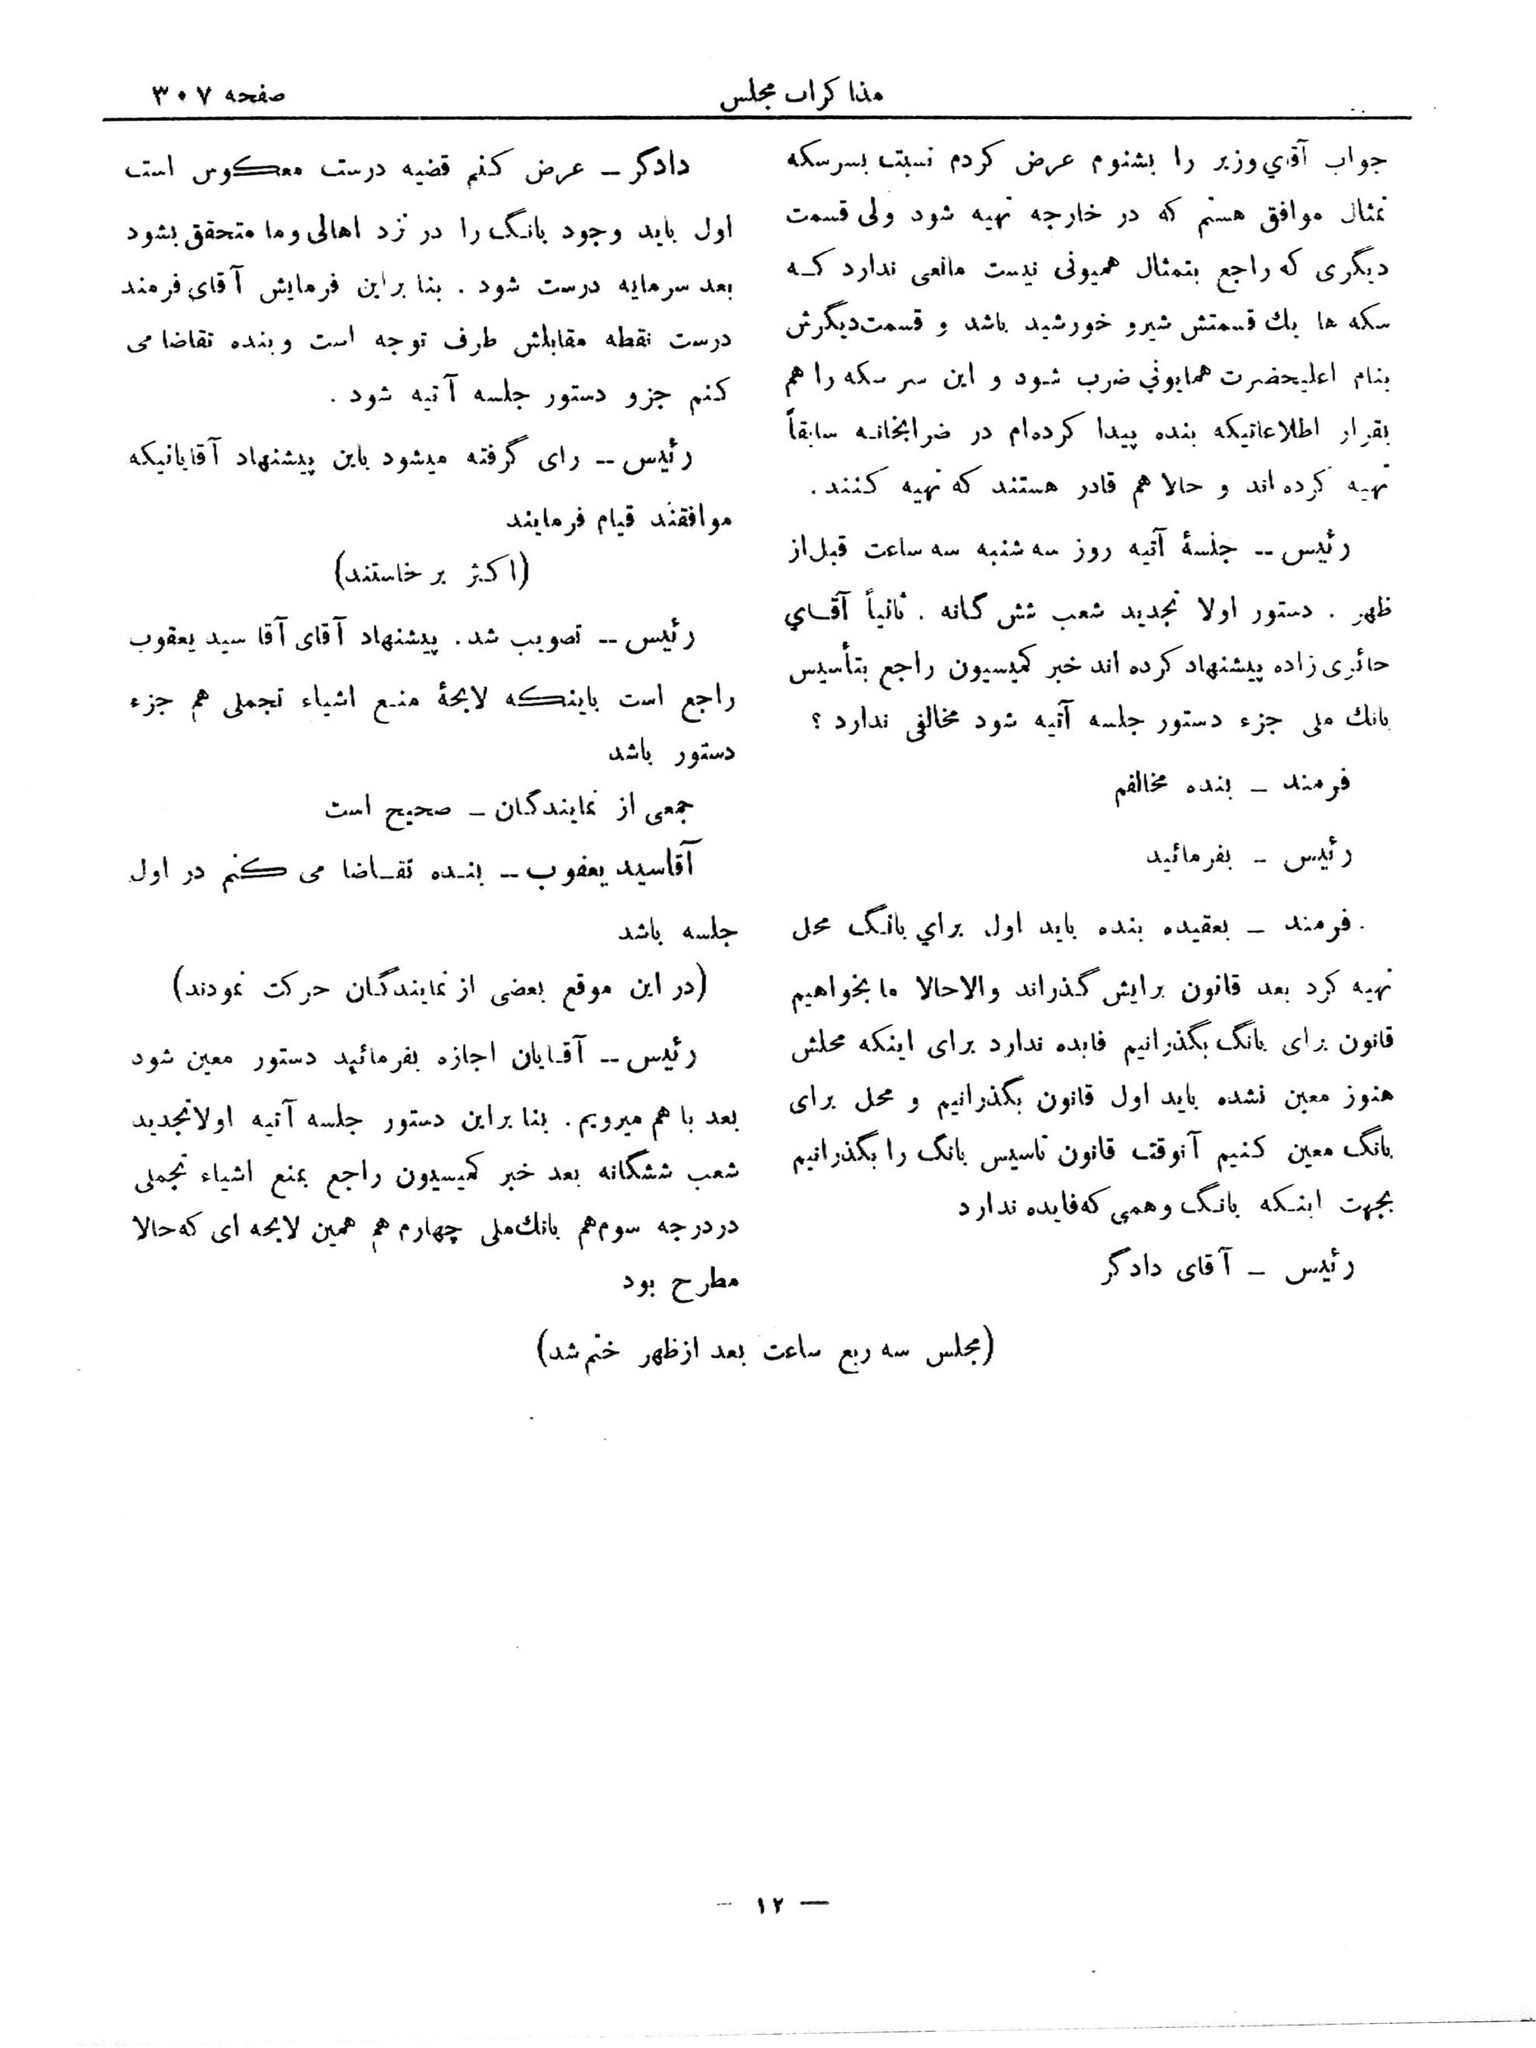 مذاکرات مجلس
صفحه ۳۰۷
جواب آقای وزیر را بشنوم عرض کردم نسبت بسرسکه
تمثال موافق هستم که در خارجه تهیه شود ولی قسمت
دیگری که راجع بتمثال همیونی نیست مانعی ندارد که
سکه ها یك قسمتش شیرو خورشید باشد و قسمت دیگرش
بنام اعلیحضرت همایونی ضرب شود و این سر سکه را هم
بقرار اطلاعاتیکه بنده پیدا کرده‌ام در ضرابخانه سابقاً
تهیه کرده اند و حالا هم قادر هستند که تهیه کنند .
رئیس -- جلسهٔ آتیه روز سه شنبه سه ساعت قبل از
ظهر . دستور اولا تجدید شعب شش گانه . ثانیاً آقای
حائری زاده پیشنهاد کرده اند خبر کمیسیون راجع بتأسیس
بانك ملی جزء دستور جلسه آتیه شود مخالفی ندارد ؟
فرمند - بنده مخالفم
رئیس - بفرمائید
فرمند - بعقیده بنده باید اول برای بانگ محل
تهیه کرد بعد قانون برایش گذراند والا حالا ما بخواهیم
قانون برای بانگ بگذرانیم فایده ندارد برای اینکه محلش
هنوز معین نشده باید اول قانون بگذرانیم و محل برای
بانگ معین کنیم آنوقت قانون تاسیس بانگ را بگذرانیم
بجهت اینکه بانگ وهمی که فایده ندارد
رئیس - آقای دادگر
دادگر - عرض کنم قضیه درست معکوس است
اول باید وجود بانگ را در نزد اهالی وما متحقق بشود
بعد سرمایه درست شود . بنا براین فرمایش آقای فرمند
درست نقطه مقابلش طرف توجه است و بنده تقاضا می
کنم جزو دستور جلسه آتیه شود .
رئیس -- رای گرفته میشود باین پیشنهاد آقایانیکه
موافقند قیام فرمایند
(اکثر برخاستند)
رئیس -- تصویب شد. پیشنهاد آقای آقا سید یعقوب
راجع است باینکه لایحهٔ منع اشیاء تجملی هم جزء
دستور باشد
جمعی از نمایندگان - صحیح است
آقاسید یعقوب -- بنده تقاضا می کنم در اول
جلسه باشد
(در این موقع بعضی از نمایندگان حرکت نمودند)
رئیس -- آقایان اجازه بفرمائید دستور معین شود
بعد با هم میرویم. بنا براین دستور جلسه آتیه اولا تجدید
شعب ششگانه بعد خبر کمیسیون راجع بمنع اشیاء تجملی
در درجه سوم هم بانك ملی چهارم هم همین لایحه ای که حالا
مطرح بود
(مجلس سه ربع ساعت بعد از ظهر ختم شد)
— ۱۲ —